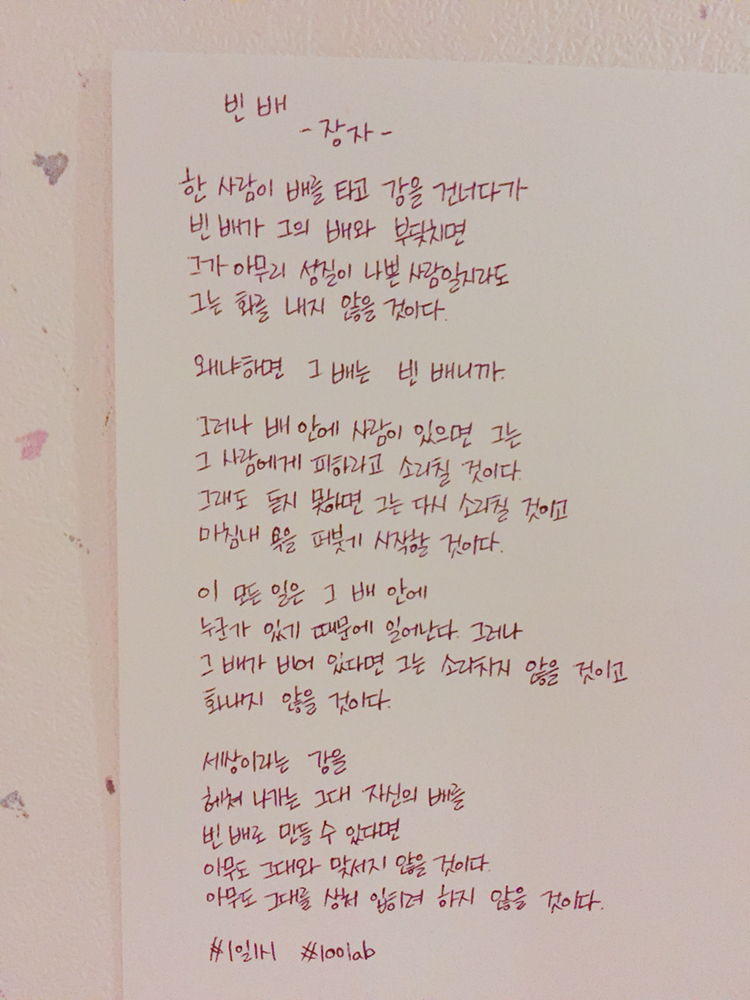 빈 배
- 장자 -
한 사람이 배를 타고 강을 건너다가
빈 배가 그의 배와 부딪치면
그가 아무리 성질이 나쁜 사람일지라도
그는 화를 내지 않을 것이다.
왜냐하면 그 배는 빈 배니까.
그러나 배 안에 사람이 있으면 그는
그 사람에게 피하라고 소리칠 것이다.
그래도 듣지 못하면 그는 다시 소리칠 것이고
마침내 욕을 퍼붓기 시작할 것이다.
이 모든 일은 그 배 안에
누군가 있기 때문에 일어난다. 그러나
그 배가 비어 있다면 그는 소리치지 않을 것이고
화내지 않을 것이다.
세상이라는 강을
헤쳐 나가는 그대 자신의 배를
빈 배로 만들 수 있다면
아무도 그대와 맞서지 않을 것이다.
아무도 그대를 상처 입히려 하지 않을 것이다.
#1일1시 #100lab